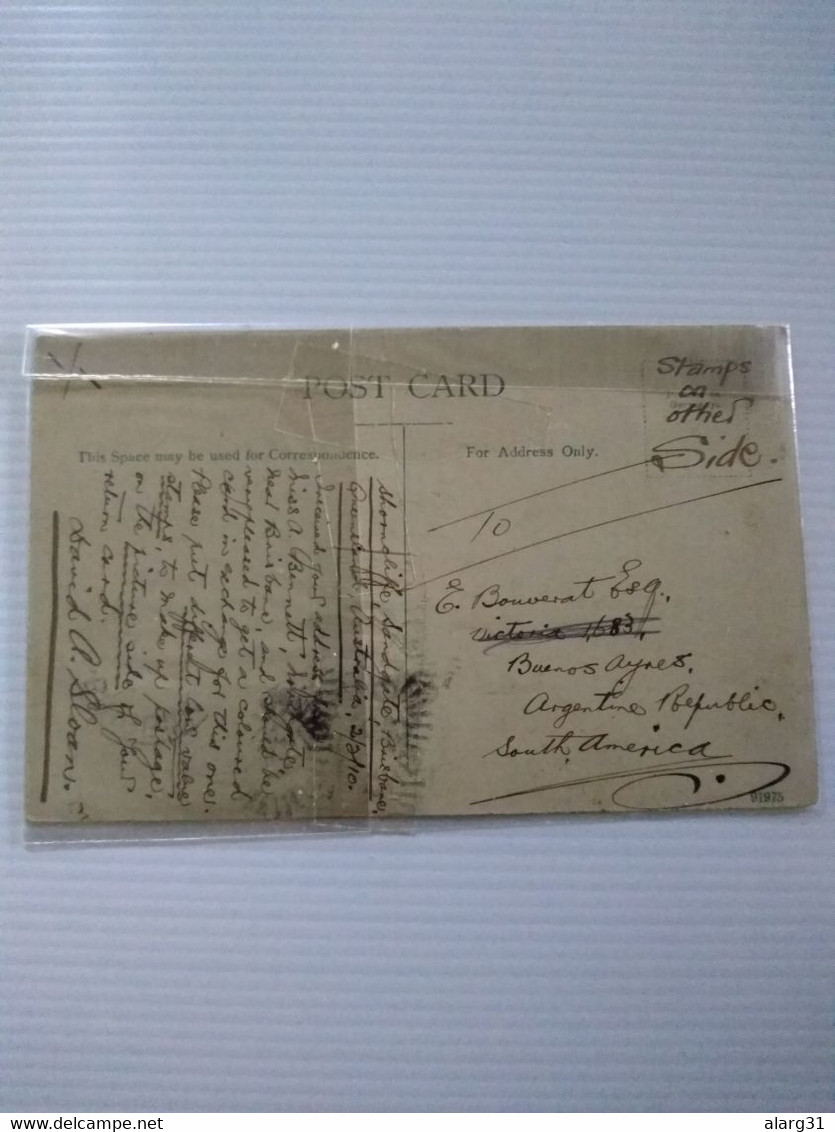 POST CARD
Stamps
on
other
Side.
This Space may be used for Correspondence.
For Address Only.
Shorncliffe, Sandgate, Brisbane,
Queensland, Australia, 2/3/10.
I received your address from
Miss A. Bennett, Sandgate,
near Brisbane, and should be
very pleased to get a coloured
card in exchange for this one.
Please put different low value
stamps, to make up postage,
on the picture side of your
return card.
David A. Sloan.
10
E. Bouverat Esq.,
Victoria 1683,
Buenos Ayres,
Argentine Republic,
South America
91975
delcampe.net
alarg31